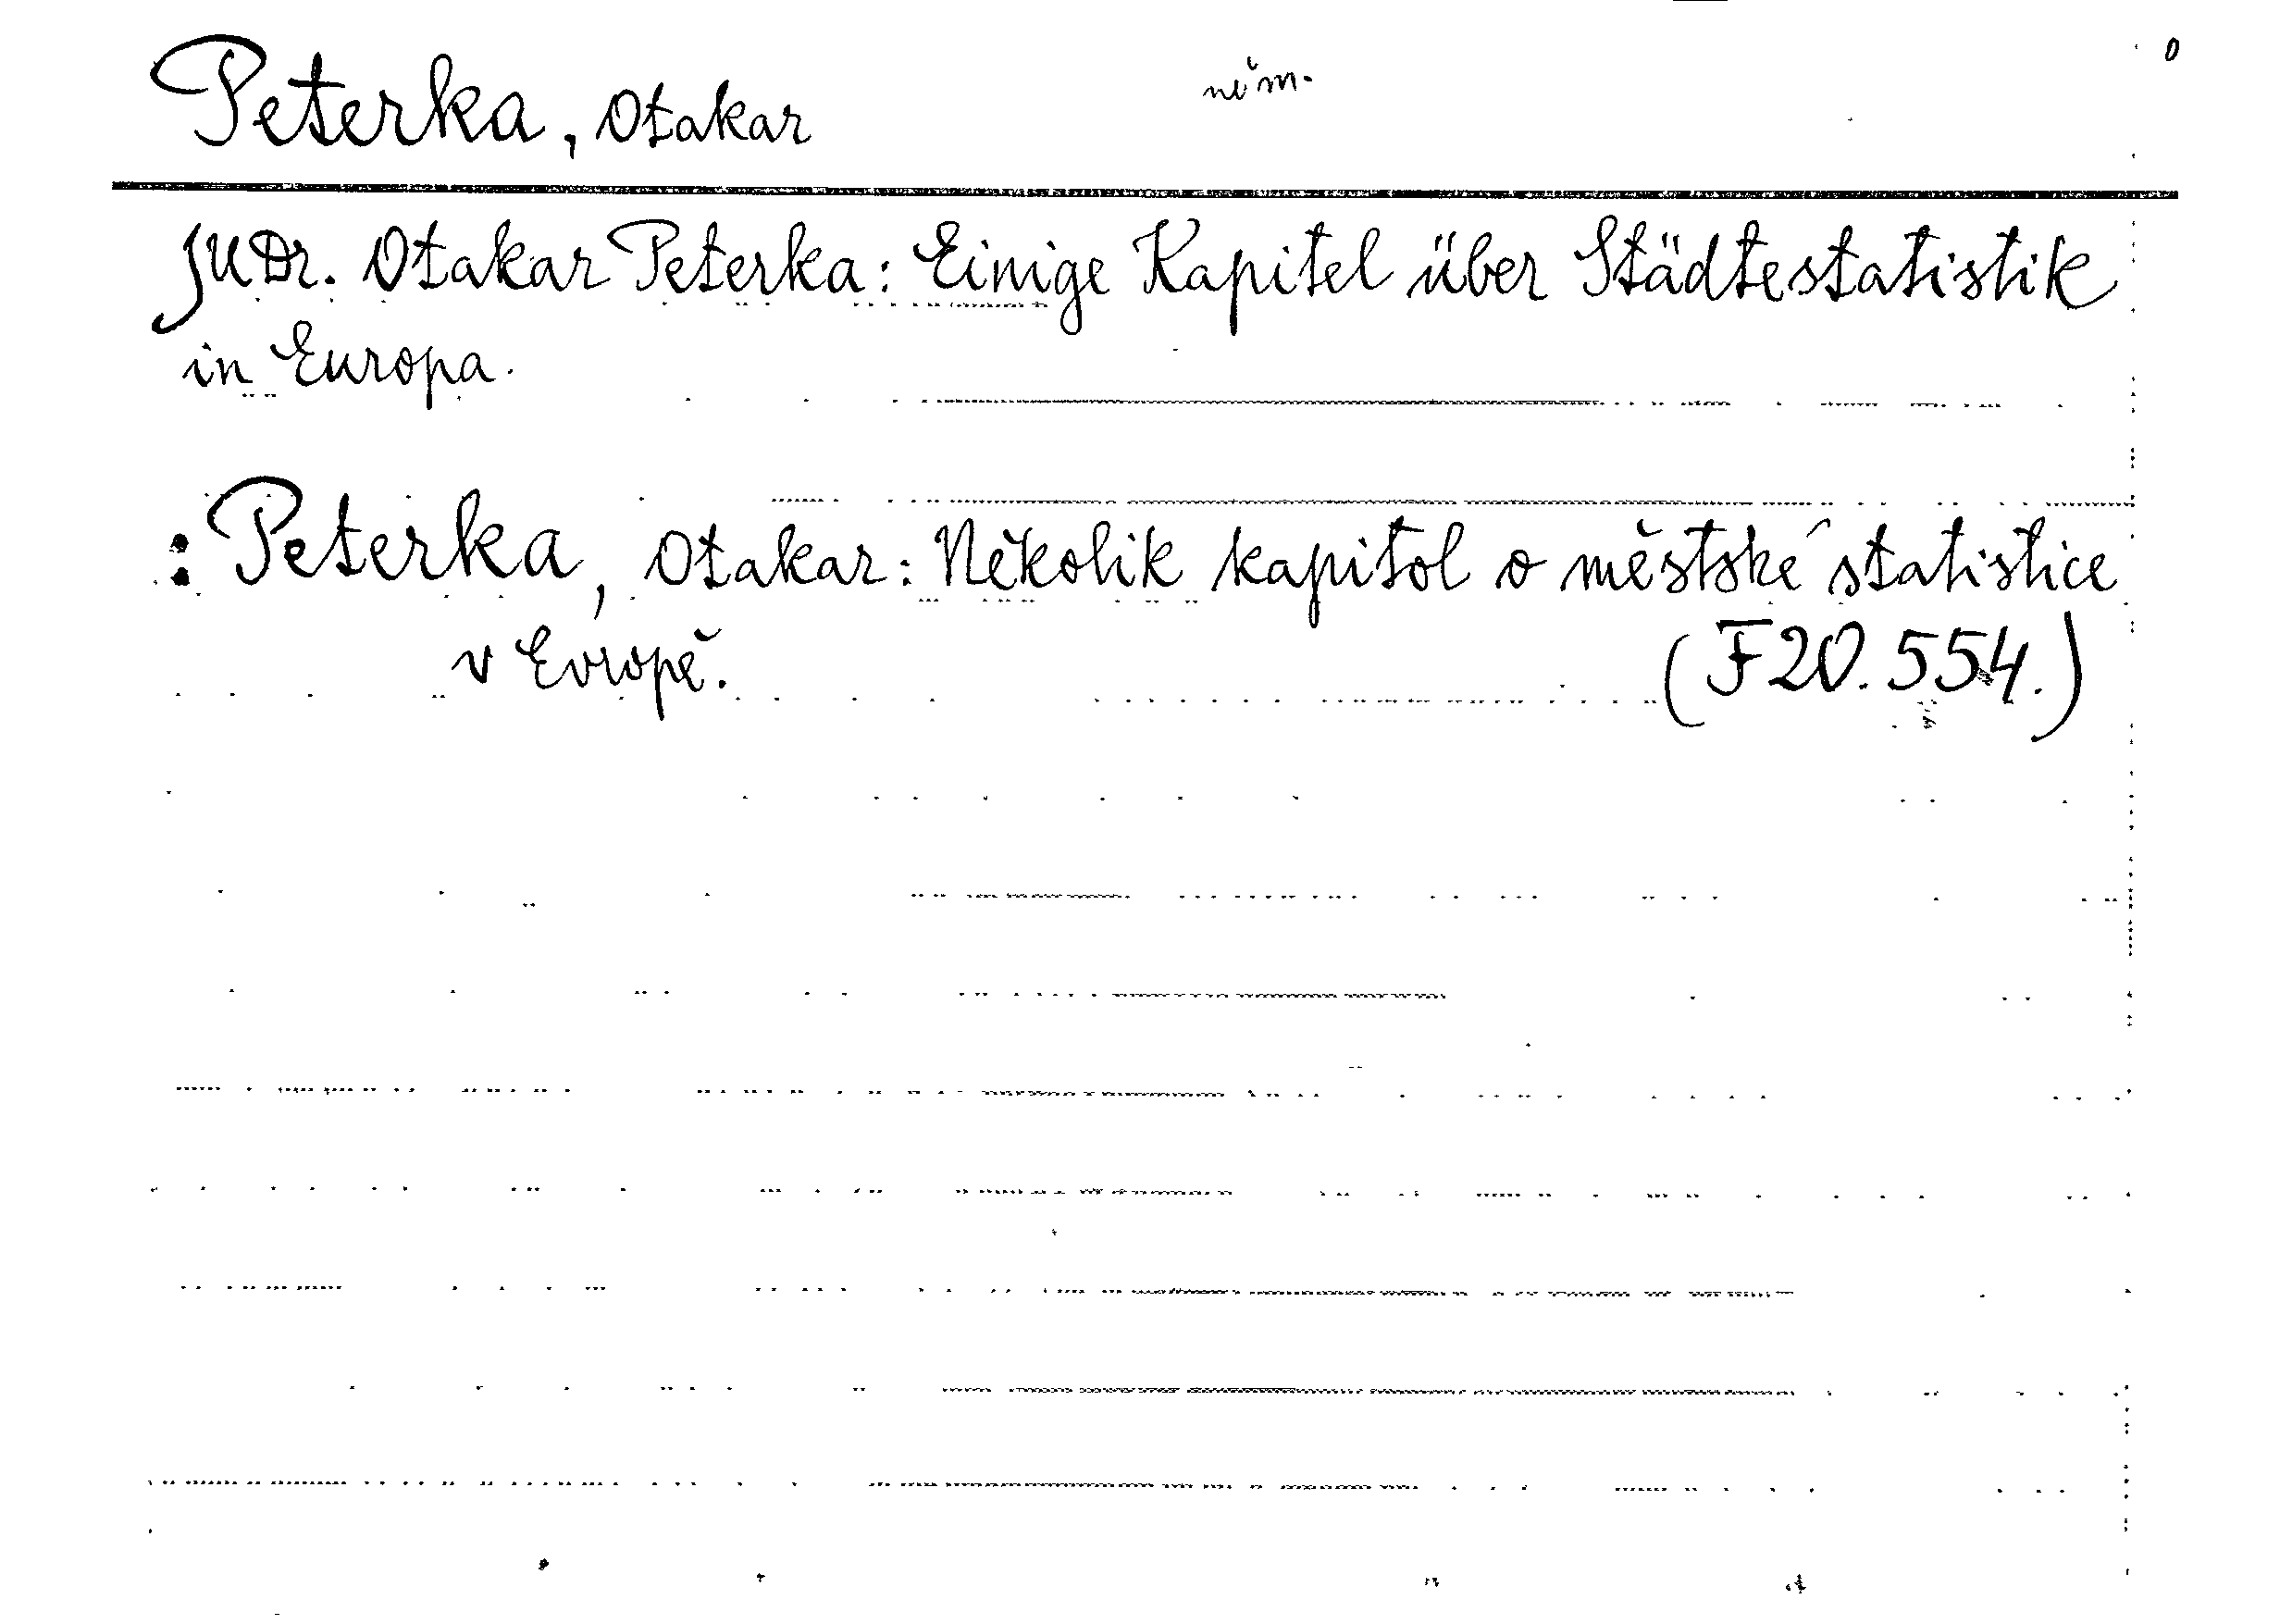 Peterka, Otakar něm. 0
JUDr. Otakar Peterka: Einige Kapitel über Städtestatistik
in Europa.
: Peterka, Otakar: Několik kapitol o městské statistice
v Evropě. (F20.554.)